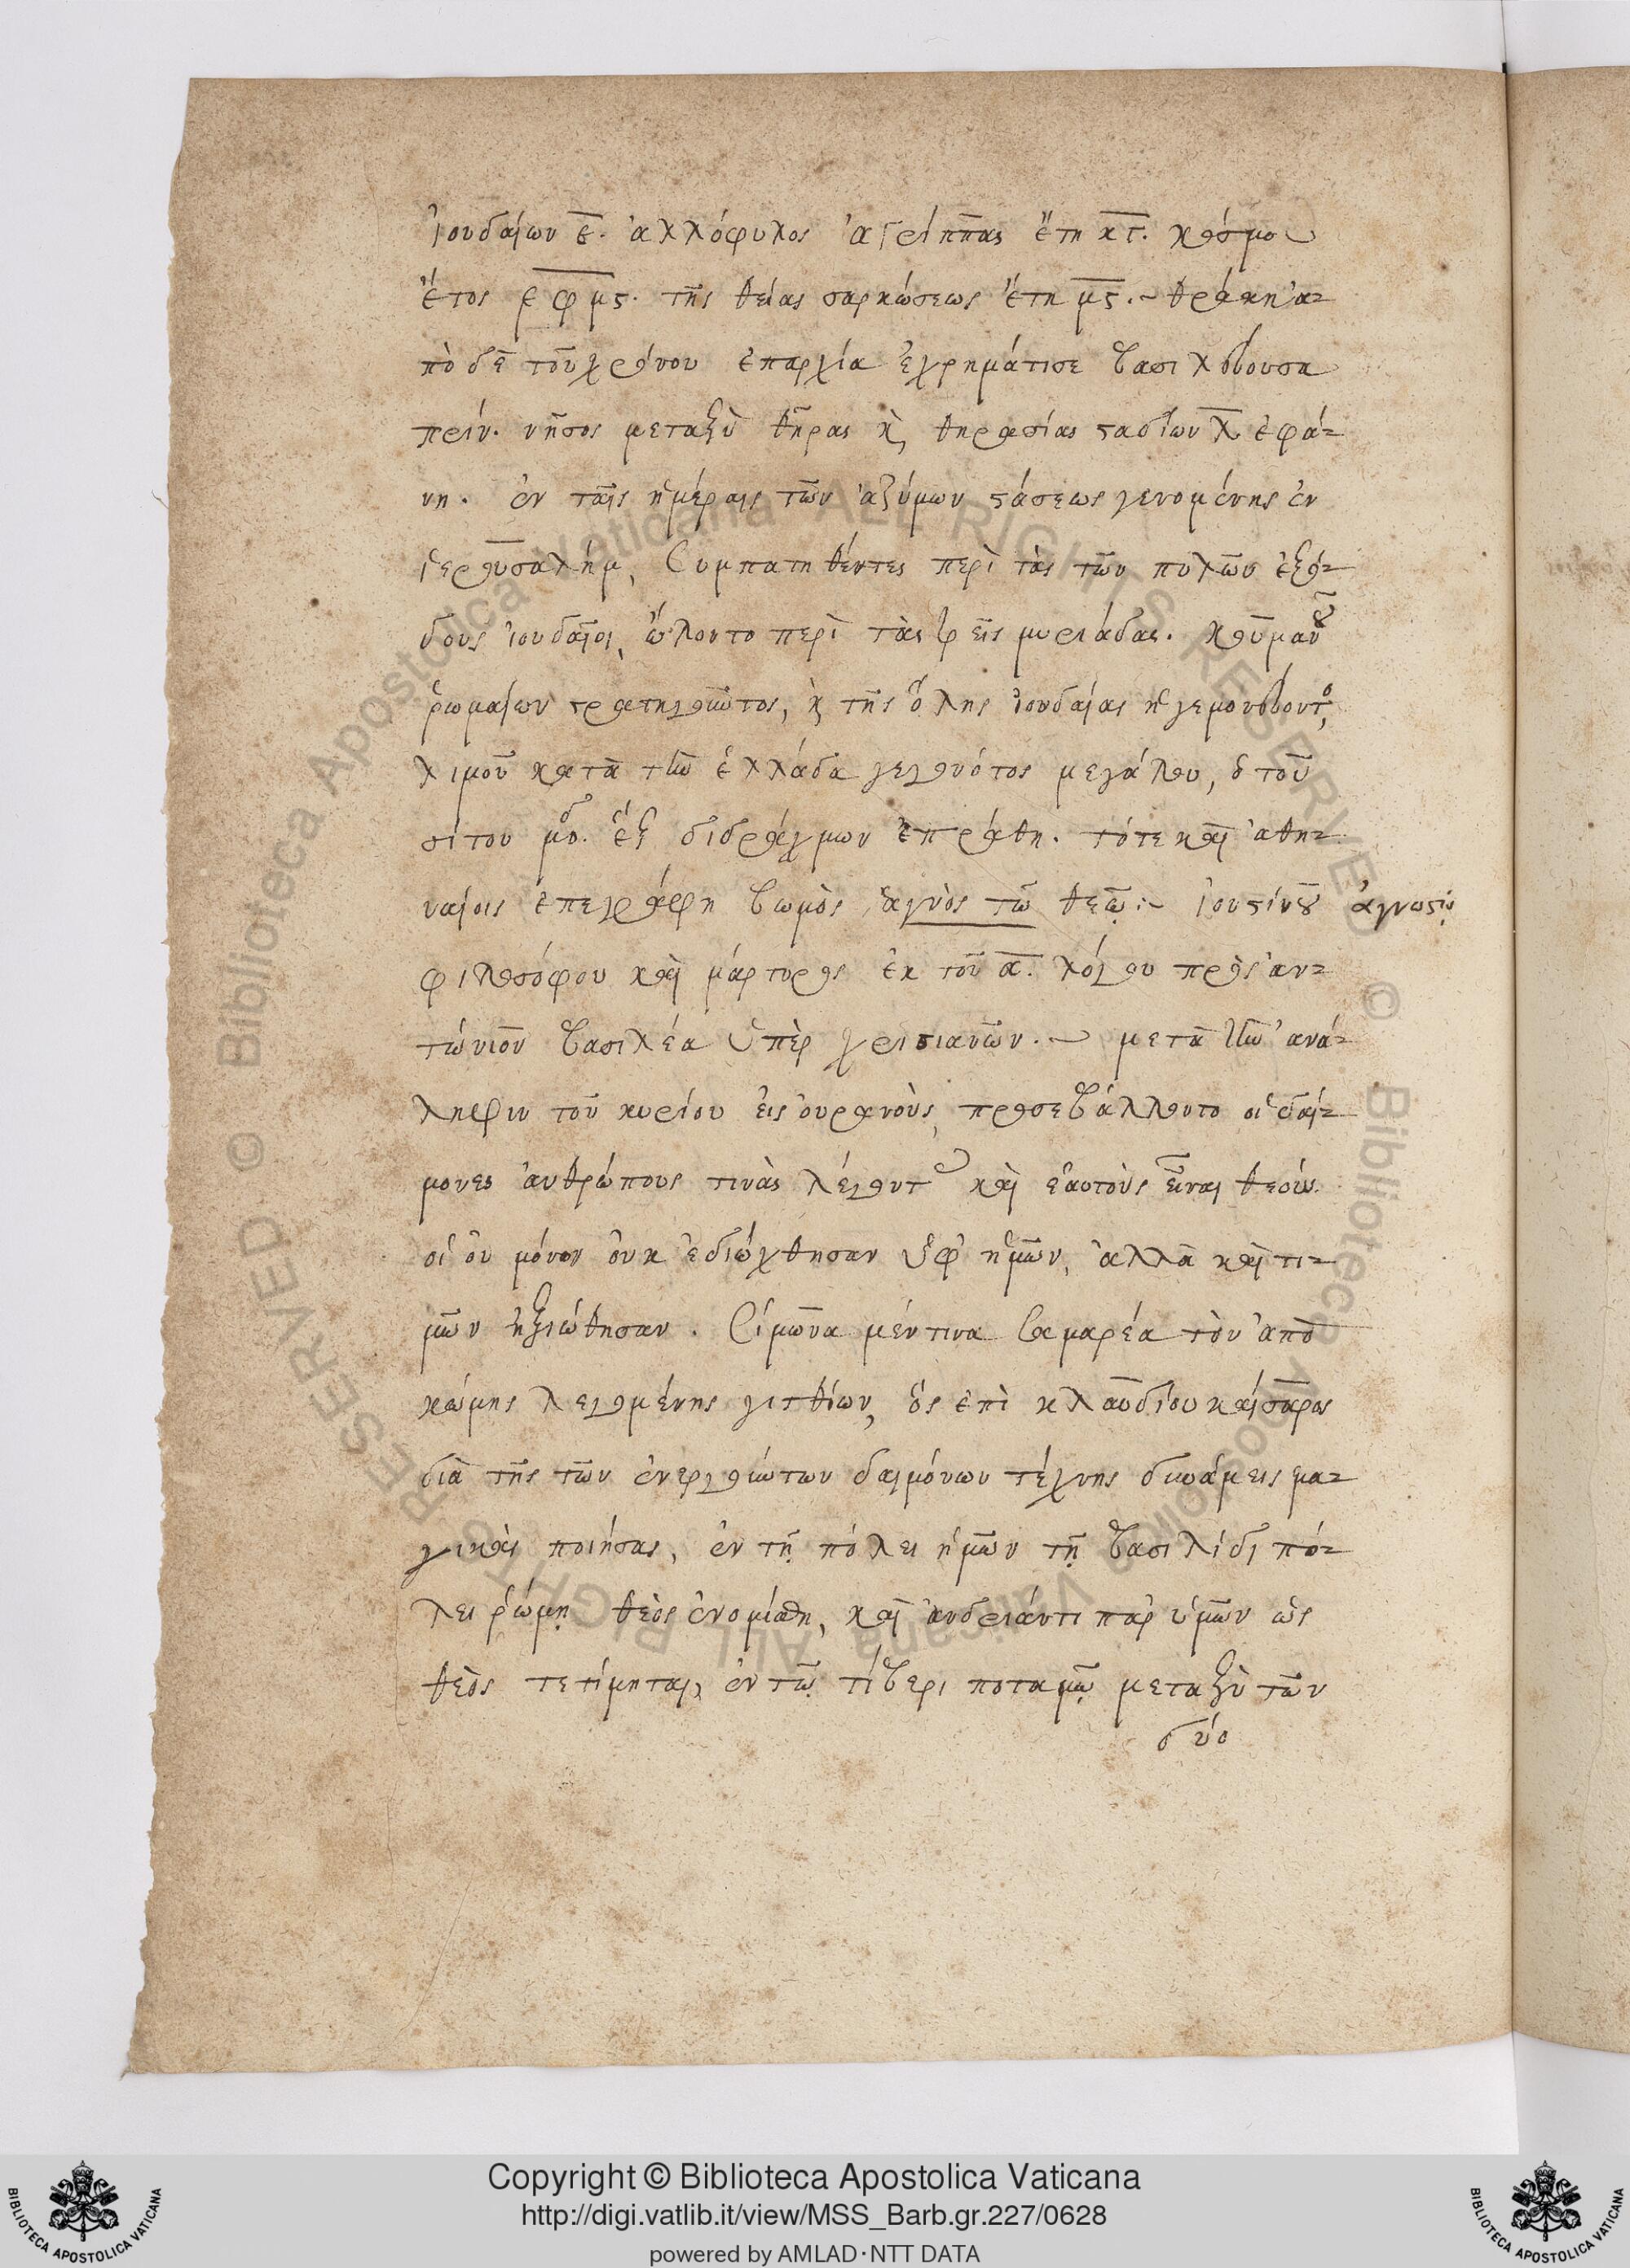 ἰουδαίων ε̅. ἀλλόφυλος ἀγρίππας ἔτη κϛ̅. κόσμου
ἔτος ͵ε̅φ̅μ̅ϛ. τῆς θείας σαρκώσεως ἔτη μ̅ϛ.~ θράκη ἀ-
πὸ δὲ τοῦ χρόνου ἐπαρχία ἐχρημάτισε βασιλεύουσα
πρίν. νῆσος μεταξὺ θήρας κ̀ θηρασίας ϛαδίων λ̅ ἐφά-
νη. ἐν ταῖς ἡμέραις τῶν ἀζύμων ϛάσεως γενομένης ἐν
ἱερουσαλήμ, συμπατηθέντες περὶ τὰς τῶν πυλῶν ἐξό-
δους ἰουδαῖοι, ὤλοντο περὶ τὰς τρεῖς μυριάδας. κουμανοῦ
ῥωμαίων ϛρατηγοῦντος, κ̀ τῆς ὅλης ἰουδαίας ἡγεμονεύοντος,
λιμοῦ κατὰ τὴν ἑλλάδα γεγονότος μεγάλου, ὁ τοῦ
σίτου μόδ. ἓξ διδράχμων ἐπράθη. τότε καὶ ἀθη-
ναίοις ἐπεγράφη βωμὸς, ἁγνὸς τῶ θεῷ:~ ἰουϛίνου ἀγνώϛῳ
φιλοσόφου καὶ μάρτυρος ἐκ τοῦ α̅. λόγου πρὸς ἀν-
τώνιον βασιλέα ὑπὲρ χριϛιανῶν.~ μετὰ τὴν ἀνά-
ληψιν τοῦ κυρίου εἰς οὐρανοὺς, προσεβάλλοντο οἱ δαί-
μονες ἀνθρώπους τινὰς λέγοντας καὶ ἑαυτοὺς εἶναι θεούς.
οἳ οὐ μόνον οὐκ ἐδιώχθησαν ὑφ' ἡμῶν, ἀλλὰ καὶ τι-
μῶν ἠξιώθησαν. Σίμωνα μέν τινα σαμαρέα τὸν ἀπὸ
κώμης λεγομένης γιτθίων, ὃς ἐπὶ κλαυδίου καίσαρος
διὰ τῆς τῶν ἐνεργούντων δαιμόνων τέχνης δυνάμεις μα-
γικὰς ποιήσας, ἐν τῇ πόλει ἡμῶν τῇ βασιλίδι πό-
λει ῥώμῃ θεὸς ἐνομίσθη, καὶ ἀνδριάντι παρ' ὑμῶν ὡς
θεὸς τετίμηται, ἐν τῷ τίβερι ποταμῷ μεταξὺ τῶν
δύο
Copyright © Biblioteca Apostolica Vaticana
http://digi.vatlib.it/view/MSS_Barb.gr.227/0628
powered by AMLAD·NTT DATA
BIBLIOTECA APOSTOLICA VATICANA
BIBLIOTECA APOSTOLICA VATICANA